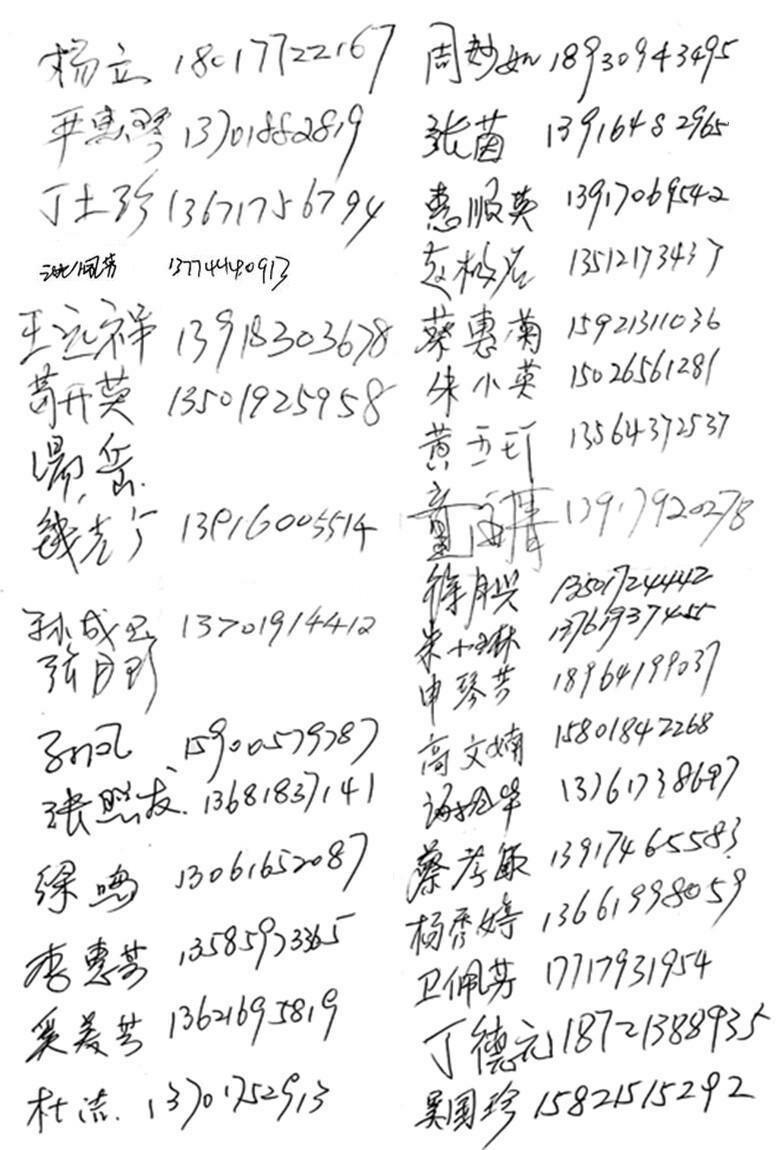 杨立 18017722167
严惠琴 13701882819
丁士珍 13671756794
沈佩芳 13774440913
王远祥 13918303678
葛开英 13501925958
汤岳
钱克广 13916005514
孙成国 13701914412
张月珍
15900579787
张照发 13681837141
徐鸣 13061652087
李惠芳 13585973365
奚美芳 13621695819
杜洁 13701752913
周妙如 18930943495
张茵 13916482965
惠顺英 13917069542
赵极岩 13512173437
蔡惠菊 15921311036
朱小英 15026561281
黄玉珩 13564372537
童海清 13917920278
徐月兴 13501724442
13761937455
申琴芳 18964199037
高文娴 15801842268
13761738697
蔡孝敏 13917465583
杨秀婷 13661998059
卫佩芳 17717931954
丁德元 18721388935
吴国珍 15821515292